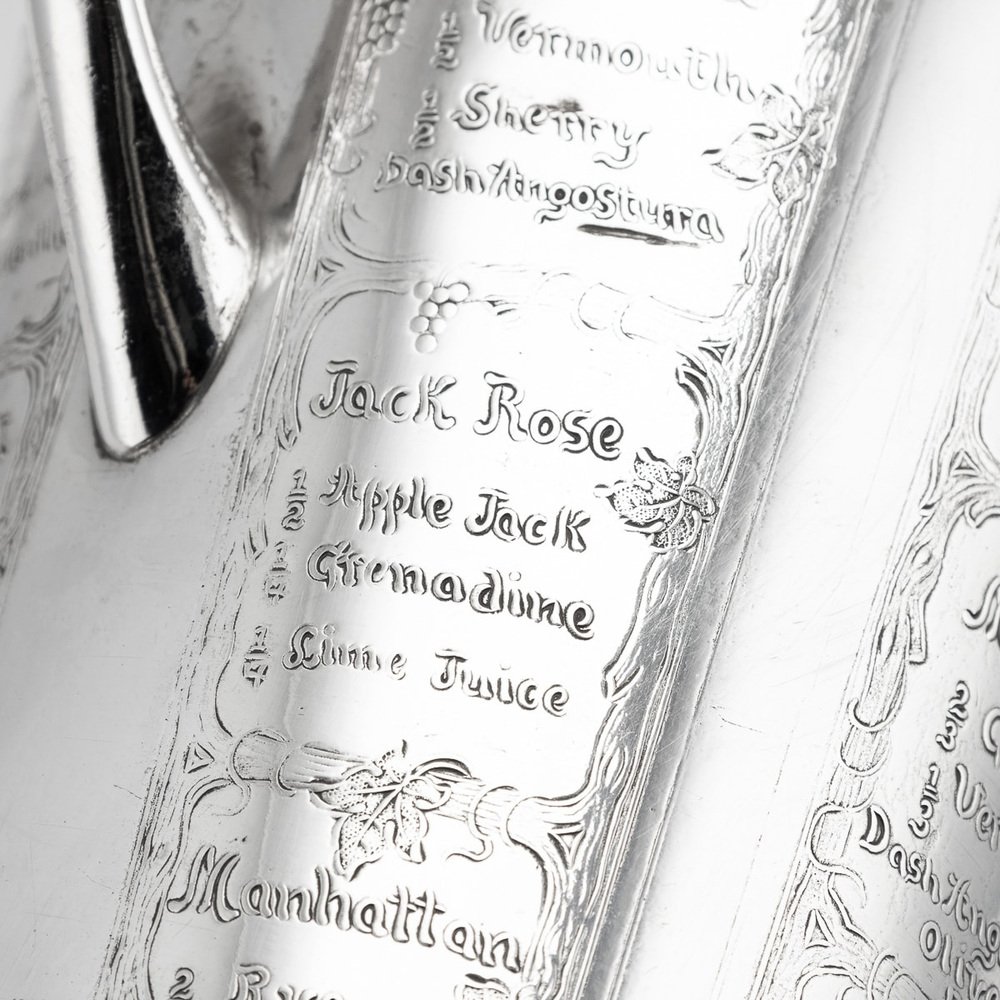 1/2 Vermouth
1/2 Sherry
Dash Angostura
Jack Rose
1/2 Apple Jack
1/4 Grenadine
1/4 Lime Juice
Manhattan
2
Dash Ang